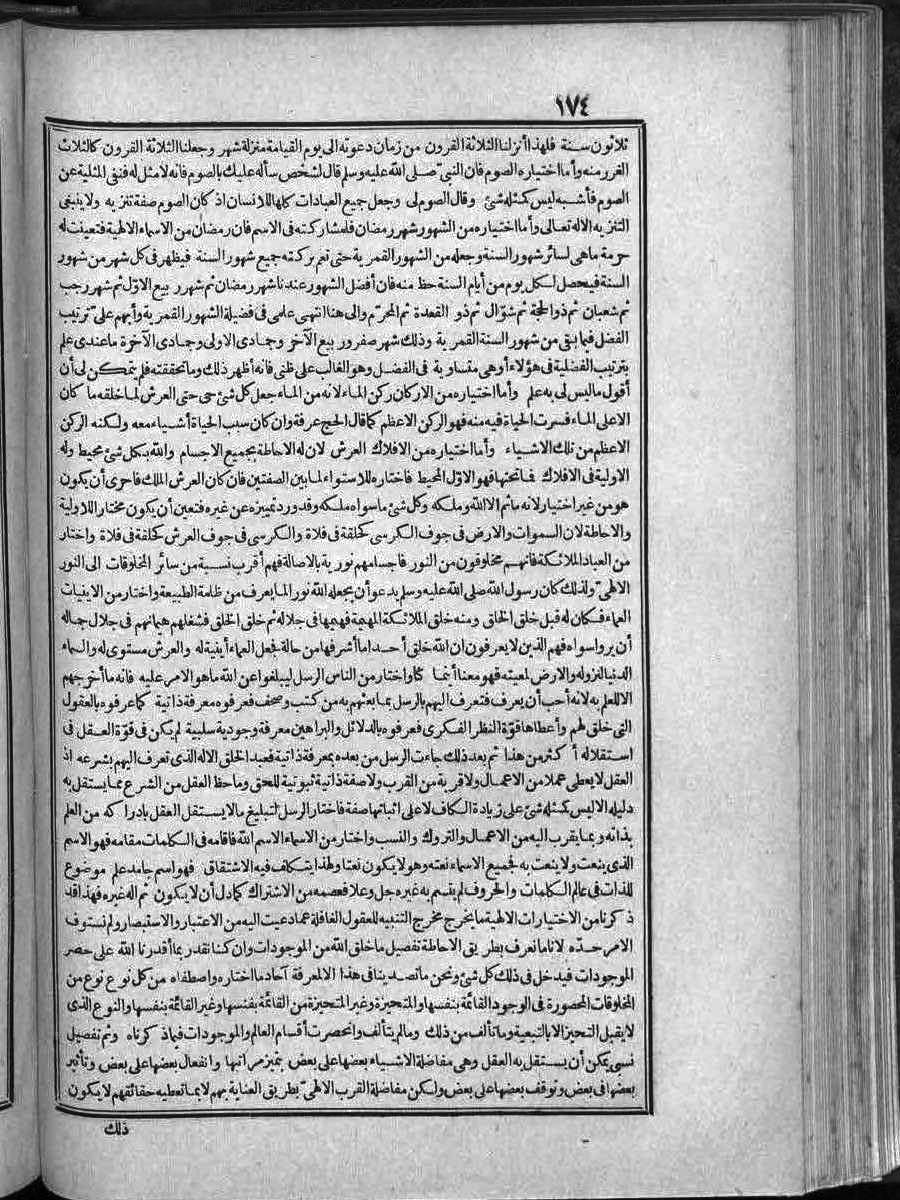 ١٧٤
ثلاثون سنة فلهذا أنزلنا الثلاثة القرون من زمان دعوته الى يوم القيامة منزلة شهر وجعلنا الثلاثة القرون كالثلاث
الغرر منه وأما اختياره الصوم فان النبي صلى الله عليه وسلم قال لشخص سأله عليك بالصوم فانه لا مثل له فنفي المثلية عن
الصوم فأشبه ليس كمثله شئ وقال الصوم لى وجعل جميع العبادات كلها للانسان اذ كان الصوم صفة تنزيه ولا ينبغي
التنزيه الا له تعالى وأما اختياره من الشهور شهر رمضان فلمشاركته فى الاسم فان رمضان من الاسماء الالهية فتعينت له
حرمة ما هى لسائر شهور السنة وجعله من الشهور القمرية حتى تعم بركته جميع شهور السنة فيظهر فى كل شهر من شهور
السنة فيحصل لكل يوم من أيام السنة حظ منه فان أفضل الشهور عندنا شهر رمضان ثم شهر ربيع الاول ثم شهر رجب
ثم شعبان ثم ذو الحجة ثم شوّال ثم ذو القعدة ثم المحرّم والى هنا انتهى علمى فى فضيلة الشهور القمرية وأبهم علىّ ترتيب
الفضل فيما بقى من شهور السنة القمرية وذلك شهر صفر وربيع الآخر وجمادى الاولى وجمادى الآخرة ما عندى علم
بترتيب الفضلية فى هؤلاء أو هى متساوية فى الفضل وهو الغالب على ظنى فانه أظهر ذلك وما تحققته فلم يتمكن لى أن
أقول ما ليس لى به علم وأما اختياره من الاركان ركن الماء لانه من الماء جعل كل شئ حى حتى العرش لما خلقه ما كان
الا على الماء فسرت الحياة فيه منه فهو الركن الاعظم كما قال الحج عرفة وان كان سبب الحياة أشياء معه ولكنه الركن
الاعظم من تلك الاشياء وأما اختياره من الافلاك العرش لان له الاحاطة بجميع الاجسام والله بكل شئ محيط وله
الاولية فى الافلاك فما تحتها فهو الاوّل المحيط فاختاره للاستواء لما بين الصفتين فان كان العرش الملك فاحرى أن يكون
هو من غير اختيار لانه ما ثم الا الله وملكه وكل شئ ما سواه ملكه وقد ورد تميزه عن غيره فتعين أن يكون مختار اللاولية
والاحاطة لان السموات والارض فى جوف الكرسى كحلقة فى فلاة والكرسى فى جوف العرش كحلقة فى فلاة واختار
من العباد الملائكة فانهم مخلوقون من النور فاجسامهم نورية بالاصالة فهم أقرب نسبة من سائر المخلوقات الى النور
الالهى ولذلك كان رسول الله صلى الله عليه وسلم يدعو أن يجعله الله نور الما يعرف من ظلمة الطبيعة واختار من الاينيات
العماء فكان له قبل خلق الخلق ومنه خلق الملائكة المهيمة فهيمها فى جلاله ثم خلق الخلق فشغلهم هيمانهم فى جلال جماله
أن يروا سواه فهم الذين لا يعرفون ان الله خلق أحدا ما أشرفها من حالة فجعل العماء أينية له والعرش مستوى له والسماء
الدنيا لنزوله والارض لمعيته فهو معنا أينما كنا واختار من الناس الرسل ليبلغوا عن الله ما هو الامر عليه فانه ما أخرجهم
الا للعلم به لانه أحب أن يعرف فتعرف اليهم بالرسل بما بعثهم به من كتب وصحف فعرفوه معرفة ذاتية كما عرفوه بالعقول
التى خلق لهم وأعطاها قوّة النظر الفكرى فعرفوه بالدلائل والبراهين معرفة وجودية سلبية لم يكن فى قوّة العقل فى
استقلاله أكثر من هذا ثم بعد ذلك جاءت الرسل من بعده بمعرفة ذاتية فعبد الخلق الاله الذى تعرف اليهم بشرعه اذ
العقل لا يعطى عملا من الاعمال ولا قربة من القرب ولا صفة ذاتية ثبوتية للحق وما حظ العقل من الشرع مما يستقل به
دليله الا ليس كمثله شئ على زيادة الكاف لا على اثباتها صفة فاختار الرسل لتبليغ ما لا يستقل العقل بادراكه من العلم
بذاته وبما يقرب اليه من الاعمال والتروك والنسب واختار من الاسماء الاسم الله فاقامه فى الكلمات مقامه فهو الاسم
الذى ينعت ولا ينعت به فجميع الاسماء نعته وهو لا يكون نعتا ولهذا يتكلف فيه الاشتقاق فهو اسم جامد علم موضوع
للذات فى عالم الكلمات والحروف لم يتسم به غيره جل وعلا فعصمه من الاشتراك كما دل أن لا يكون ثم اله غيره فهذا قد
ذكرنا من الاختيارات الالهية ما يخرج مخرج التنبيه للعقول الغافلة عما دعيت اليه من الاعتبار والاستبصار ولم نستوف
الامر حدّه لانا ما نعرف بطريق الاحاطة تفصيل ما خلق الله من الموجودات وان كنا نقدر بما أقدرنا الله على حصر
الموجودات فيدخل فى ذلك كل شئ ونحن ما تصدينا فى هذا الا لمعرفة آحاد ما اختاره واصطفاه من كل نوع نوع من
المخلوقات المحصورة فى الوجود القائمة بنفسها والمتحيزة وغير المتحيزة من القائمة بنفسها وغير القائمة بنفسها والنوع الذى
لا يقبل التحيز الا بالتبعية وما تألف من ذلك وما لم يتألف وانحصرت أقسام العالم والموجودات فيما ذكرناه وثم تفصيل
نسبى يمكن أن يستقل به العقل وهى مفاضلة الاشياء بعضها على بعض بتميز مراتبها وانفعال بعضها على بعض وتأثير
بعضها فى بعض وتوقف بعضها على بعض ولكن مفاضلة القرب الالهى بطريق العناية بهم لا بما تعطيه حقائقهم لا يكون
ذلك